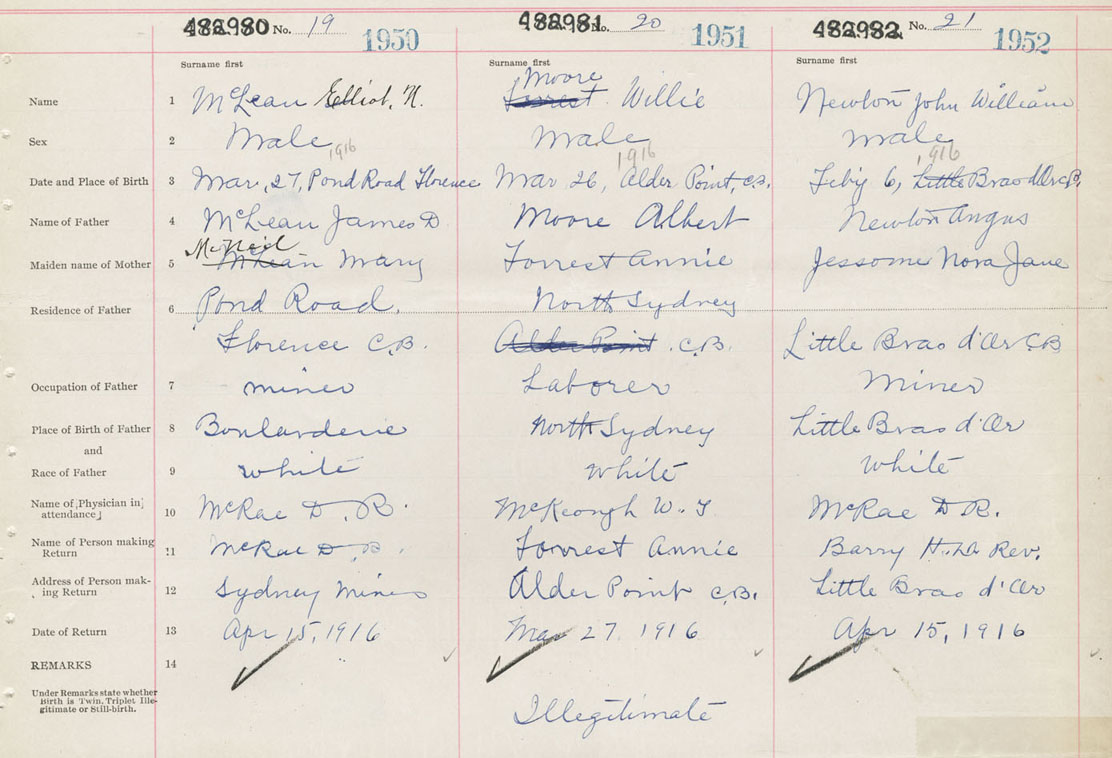 482980 No. 19 1950 482981 No. 20 1951 482982 No. 21 1952
Surname first Surname first Surname first
Moore
Name 1 McLean Elliot, H. Forrest Willie Newton John William
Sex 2 Male Male Male
1916 1916 1916
Date and Place of Birth 3 Mar, 27, Pond Road Florence Mar 26, Alder Point, C.B. Feby 6, Little Bras d'Or C.B.
Name of Father 4 McLean James D. Moore Albert Newton Angus
McNeil
Maiden name of Mother 5 McLean Mary Forrest Annie Jessome Nora Jane
Residence of Father 6 Pond Road, North Sydney
Florence C.B. Alder Point C.B. Little Bras d'Or C.B.
Occupation of Father 7 miner Laborer Miner
Place of Birth of Father 8 Boularderie North Sydney Little Bras d'Or
and
Race of Father 9 white white white
Name of [Physician in
attendance] 10 McRae D. R. McKeough W. T McRae D R.
Name of Person making
Return 11 McRae D. R. Forrest Annie Barry H. D. Rev.
Address of Person mak-
ing Return 12 Sydney Mines Alder Point C.B. Little Bras d'Or
Date of Return 13 Apr 15, 1916 Mar 27. 1916 Apr 15, 1916
REMARKS 14
Under Remarks state whether
Birth is Twin, Triplet Ille-
gitimate or Still-birth.
Illegitimate